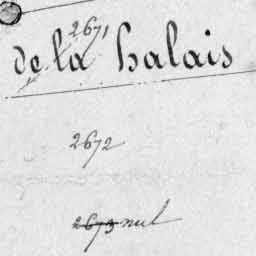 2671
de la halais
2672
2673 nul